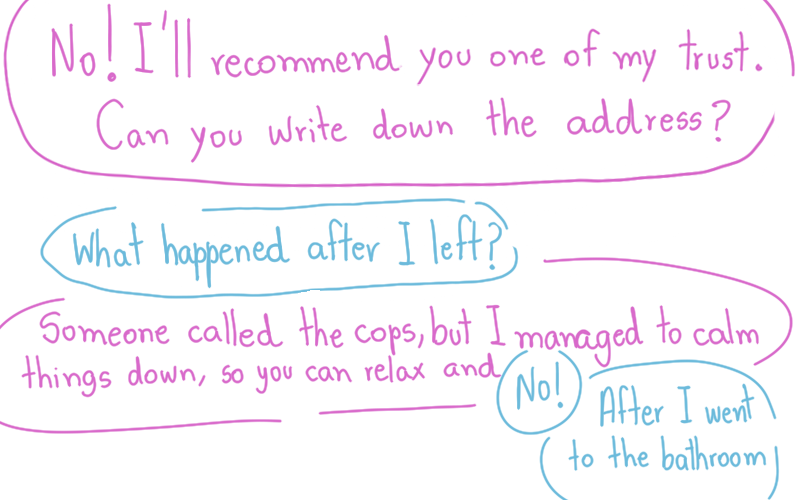 No! I'll recommend you one of my trust.
Can you write down the address?
What happened after I left?
Someone called the cops, but I managed to calm
things down, so you can relax and
No!
After I went
to the bathroom